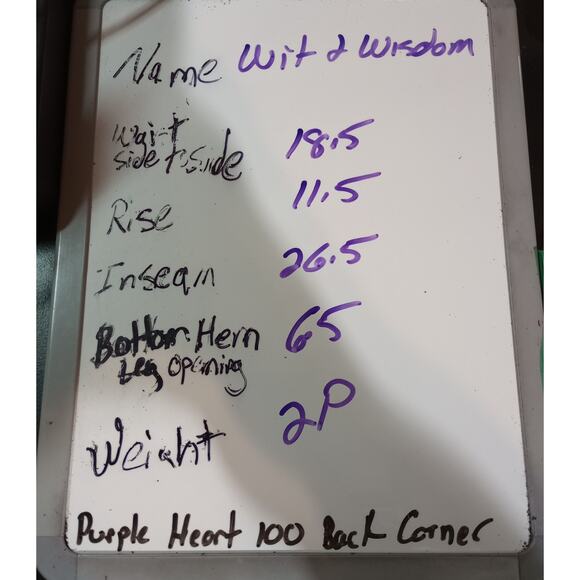 Name Wit & Wisdom
Waist
side to side 18.5
Rise 11.5
Inseam 26.5
Bottom Hem 65
Leg Opening
Weight 2P
Purple Heart 100 Back Corner